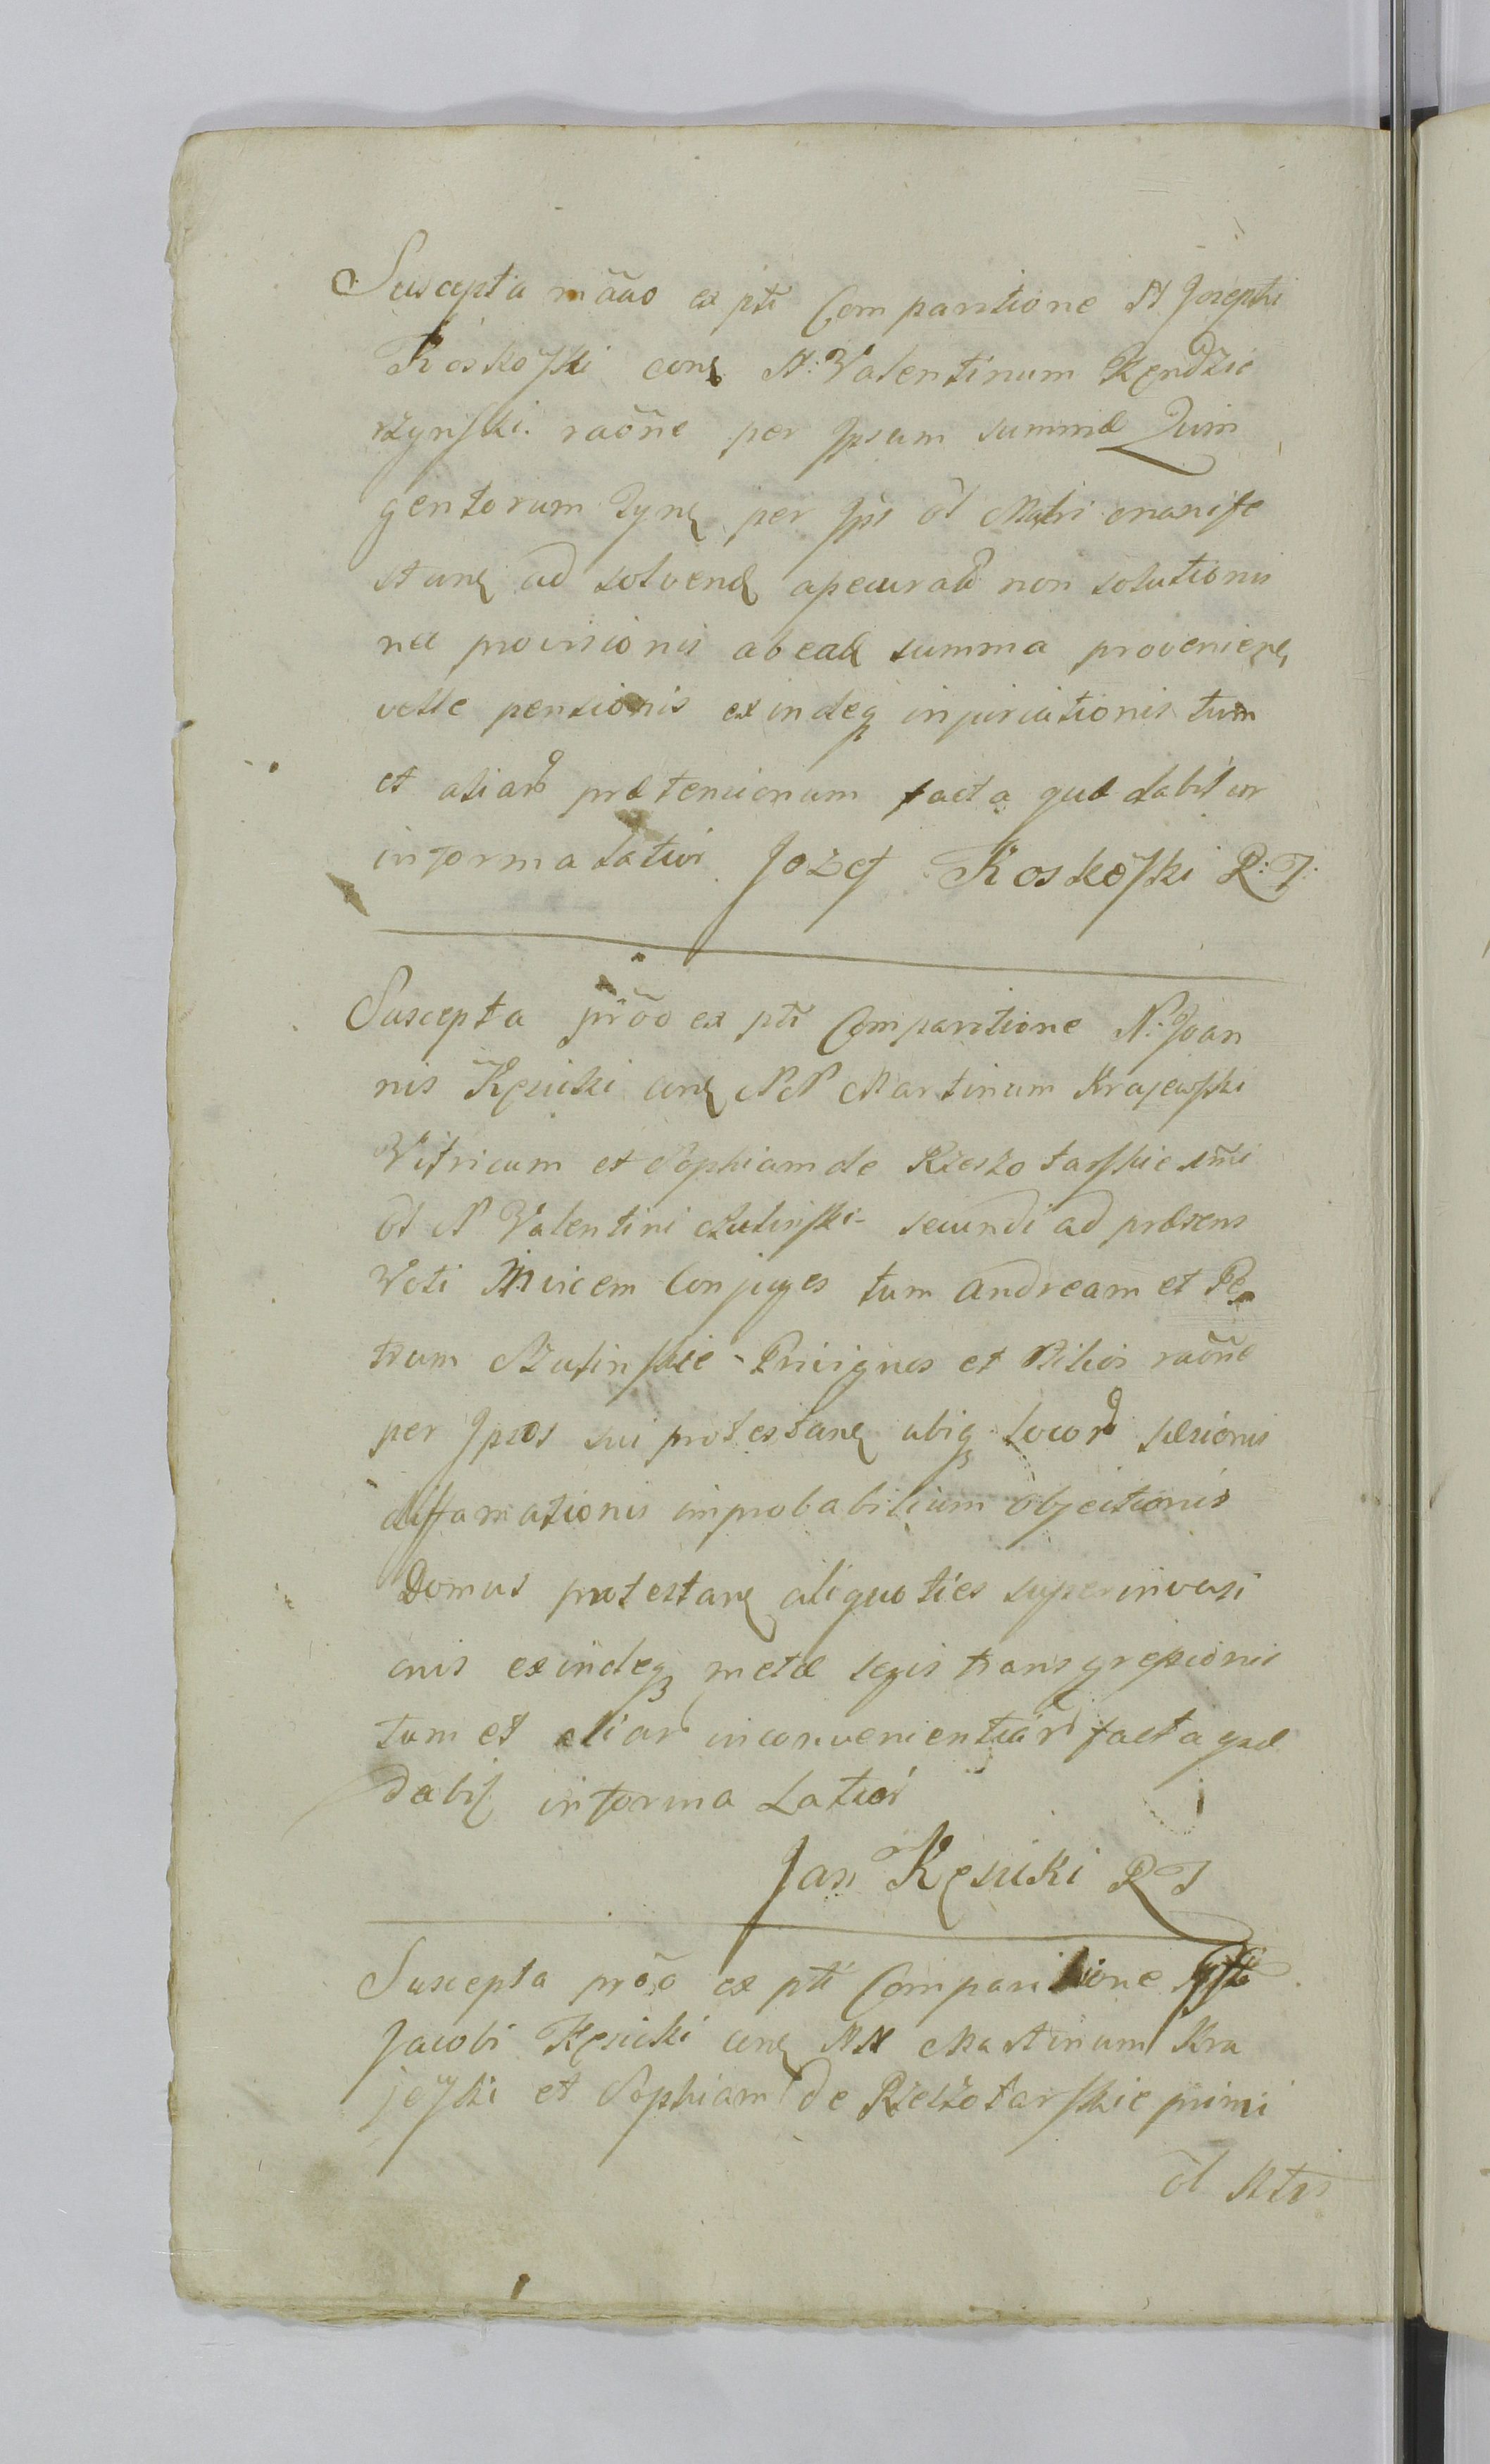 Suscepta mãao ex pti Comparitione N Josephi
Koskoſki conq N: Valentinum Kendzie
rzynſki. raõne per Ipsum summæ Quin
gentorum Tynq per Ips õl Matri manife
stanq ad solvend apecurata non solutionis
nec provisionis ab ead summa provenienq
vette pensionis exindeq injuriationis tum
et aliar prætensionum facta quæ dabitur
in forma latiori Jozef Koskoſki R: T:
Suscepta prõo ex pti Comparitione N: Joan
nis Kęsicki conq NN Martinum Krajewſki
Vitricum et Sophiam de Rzeszotarſkie 1mi
õl N Valentini Szulinſki secundi ad præsens
Voti Invicem Conjuges tum Andream et Pe
trum Szulinſkie Privignos et Filios raõne
per Ipsos sui protestanq ubiq locor læsionis
diffamationis improbabilium objectionis
Domus protestanq aliquoties superinvasi
onis exindeq metæ legis transgressionis
tum et aliar inconvenientiar facta quæ
dabit in forma Latiori
Jan Kęsicki R T
Suscepta prõo ex pti Comparitione
Jacobi Kęsicki conq NN Martinum Kra
jeſki et Sophiam de Rzeszotarſkie primi
õl